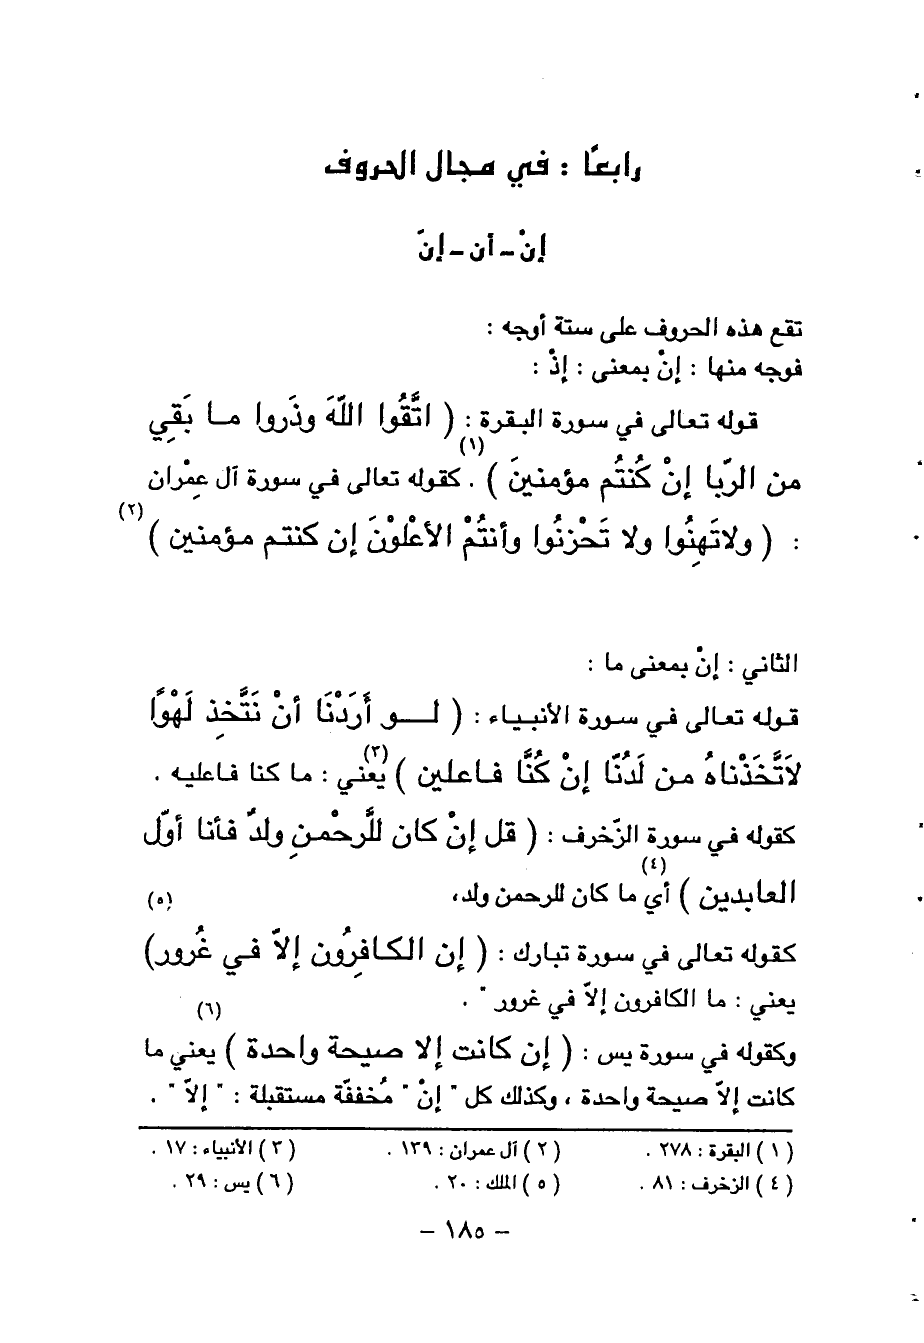 رابعًا : في مجال الحروف
إنْ – أن – إنّ
تقع هذه الحروف على ستة أوجه :
فوجه منها : إنْ بمعنى : إذْ :
قوله تعالى في سورة البقرة : ( اتَّقُوا اللّهَ وذَروا ما بَقِي
من الرّبا إنْ كُنتُم مؤمنينَ ) (١) . كقوله تعالى في سورة آل عِمْران
: ( ولاتَهِنُوا ولا تَحْزنُوا وأنتُمْ الأعْلوْنَ إن كنتم مؤمنين ) (٢)
الثاني : إنْ بمعنى ما :
قوله تعالى في سورة الأنبياء : ( لو أَرَدْنَا أنْ نَتَّخِذ لَهْوًا
لاَتَّخَذْناهُ من لَدُنّا إنْ كُنَّا فاعلين ) (٣) يعْني : ما كنا فاعليه .
كقوله في سورة الزّخرف : ( قل إنْ كان للَّرحْمنِ ولدٌ فأنا أوّل
العابدين ) (٤) أي ما كان للرحمن ولد،
كقوله تعالى في سورة تبارك : ( إن الكافِرُون إلاّ في غُرور) (٥)
يعني : ما الكافرون إلاّ في غرور " .
وكقوله في سورة يس : ( إن كانت إلا صيحة واحدة ) (٦) يعني ما
كانت إلاّ صيحة واحدة ، وكذلك كل " إنْ " مُخففّة مستقبلة : " إلاّ " .
( ١ ) البقرة : ٢٧٨ . ( ٢ ) آل عمران : ١٣٩ . ( ٣ ) الأنبياء : ١٧ .
( ٤ ) الزخرف : ٨١ . ( ٥ ) الملك : ٢٠ . ( ٦ ) يس : ٢٩ .
– ١٨٥ –